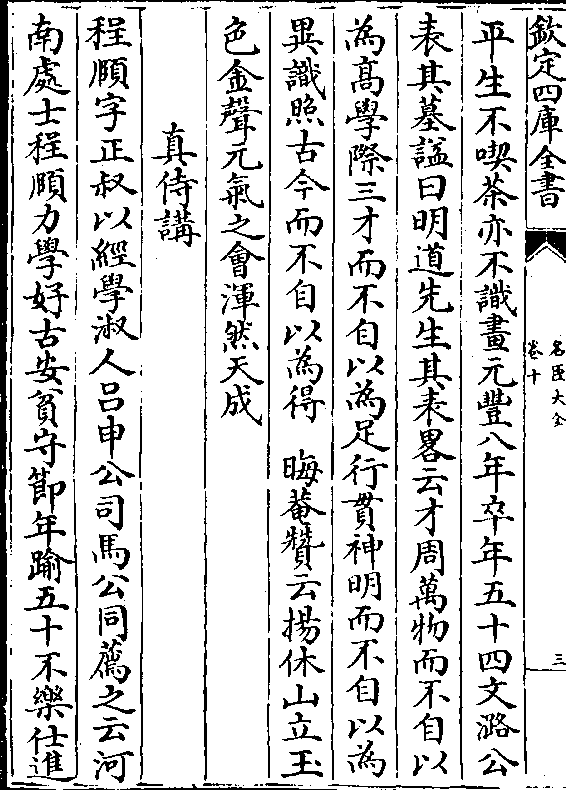 欽定四庫全書
名臣大全
卷十
三
平生不喫茶亦不識畫元豐八年卒年五十四文潞公
表其墓謚曰明道先生其表畧云才周萬物而不自以
為高學際三才而不自以為足行貫神明而不自以為
異識照古今而不自以為得 晦菴贊云揚休山立玉
色金聲元氣之會渾然天成
真侍講
程頤字正叔以經學淑人呂申公司馬公同薦之云河
南處士程頤力學好古安貧守節年踰五十不樂仕進